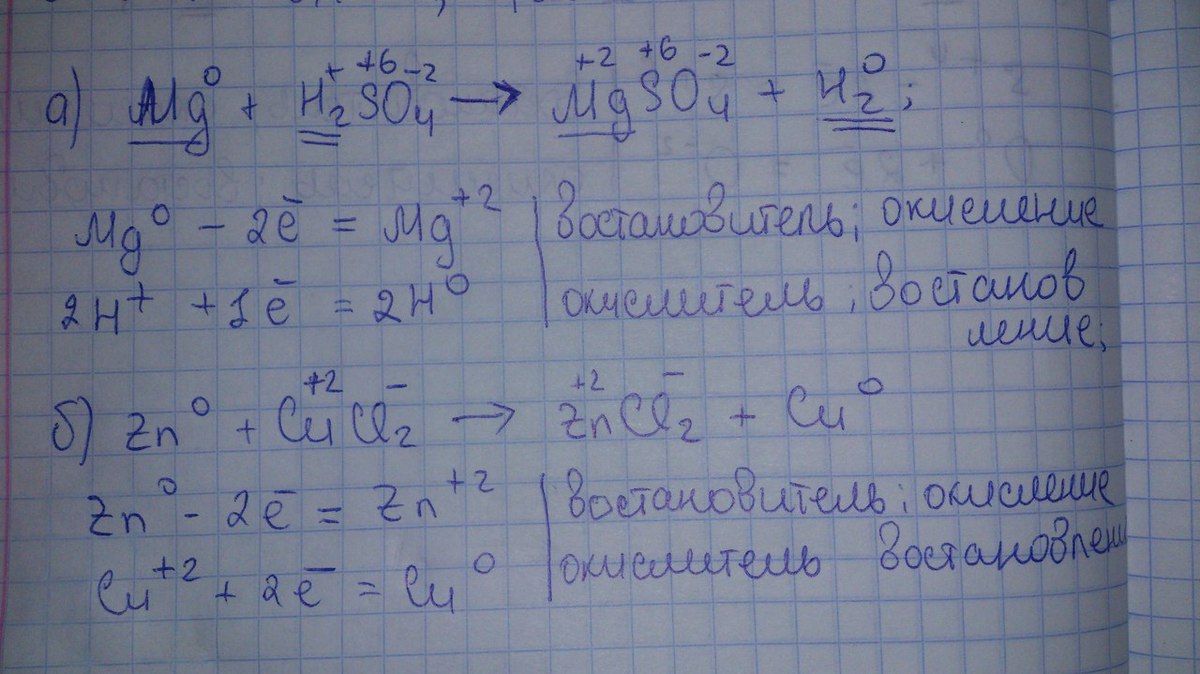 а) Mg⁰ + H₂⁺S⁺⁶O₄⁻² → Mg⁺²S⁺⁶O₄⁻² + H₂⁰;
Mg⁰ - 2ē = Mg⁺² | востановитель; окисление
2H⁺ + 1ē = 2H⁰ | окислитель; востанов
ление;
б) Zn⁰ + Cu⁺²Cl₂⁻ → Zn⁺²Cl₂⁻ + Cu⁰
Zn⁰ - 2ē = Zn⁺² | востановитель; окисление
Cu⁺² + 2ē = Cu⁰ | окислитель востановлени